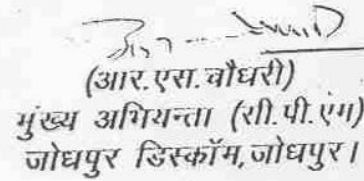 (आर.एस.चौधरी)
मुंख्य अभियन्ता (सी.पी.एंग)
जोधपुर डिस्कॉम,जोधपुर।